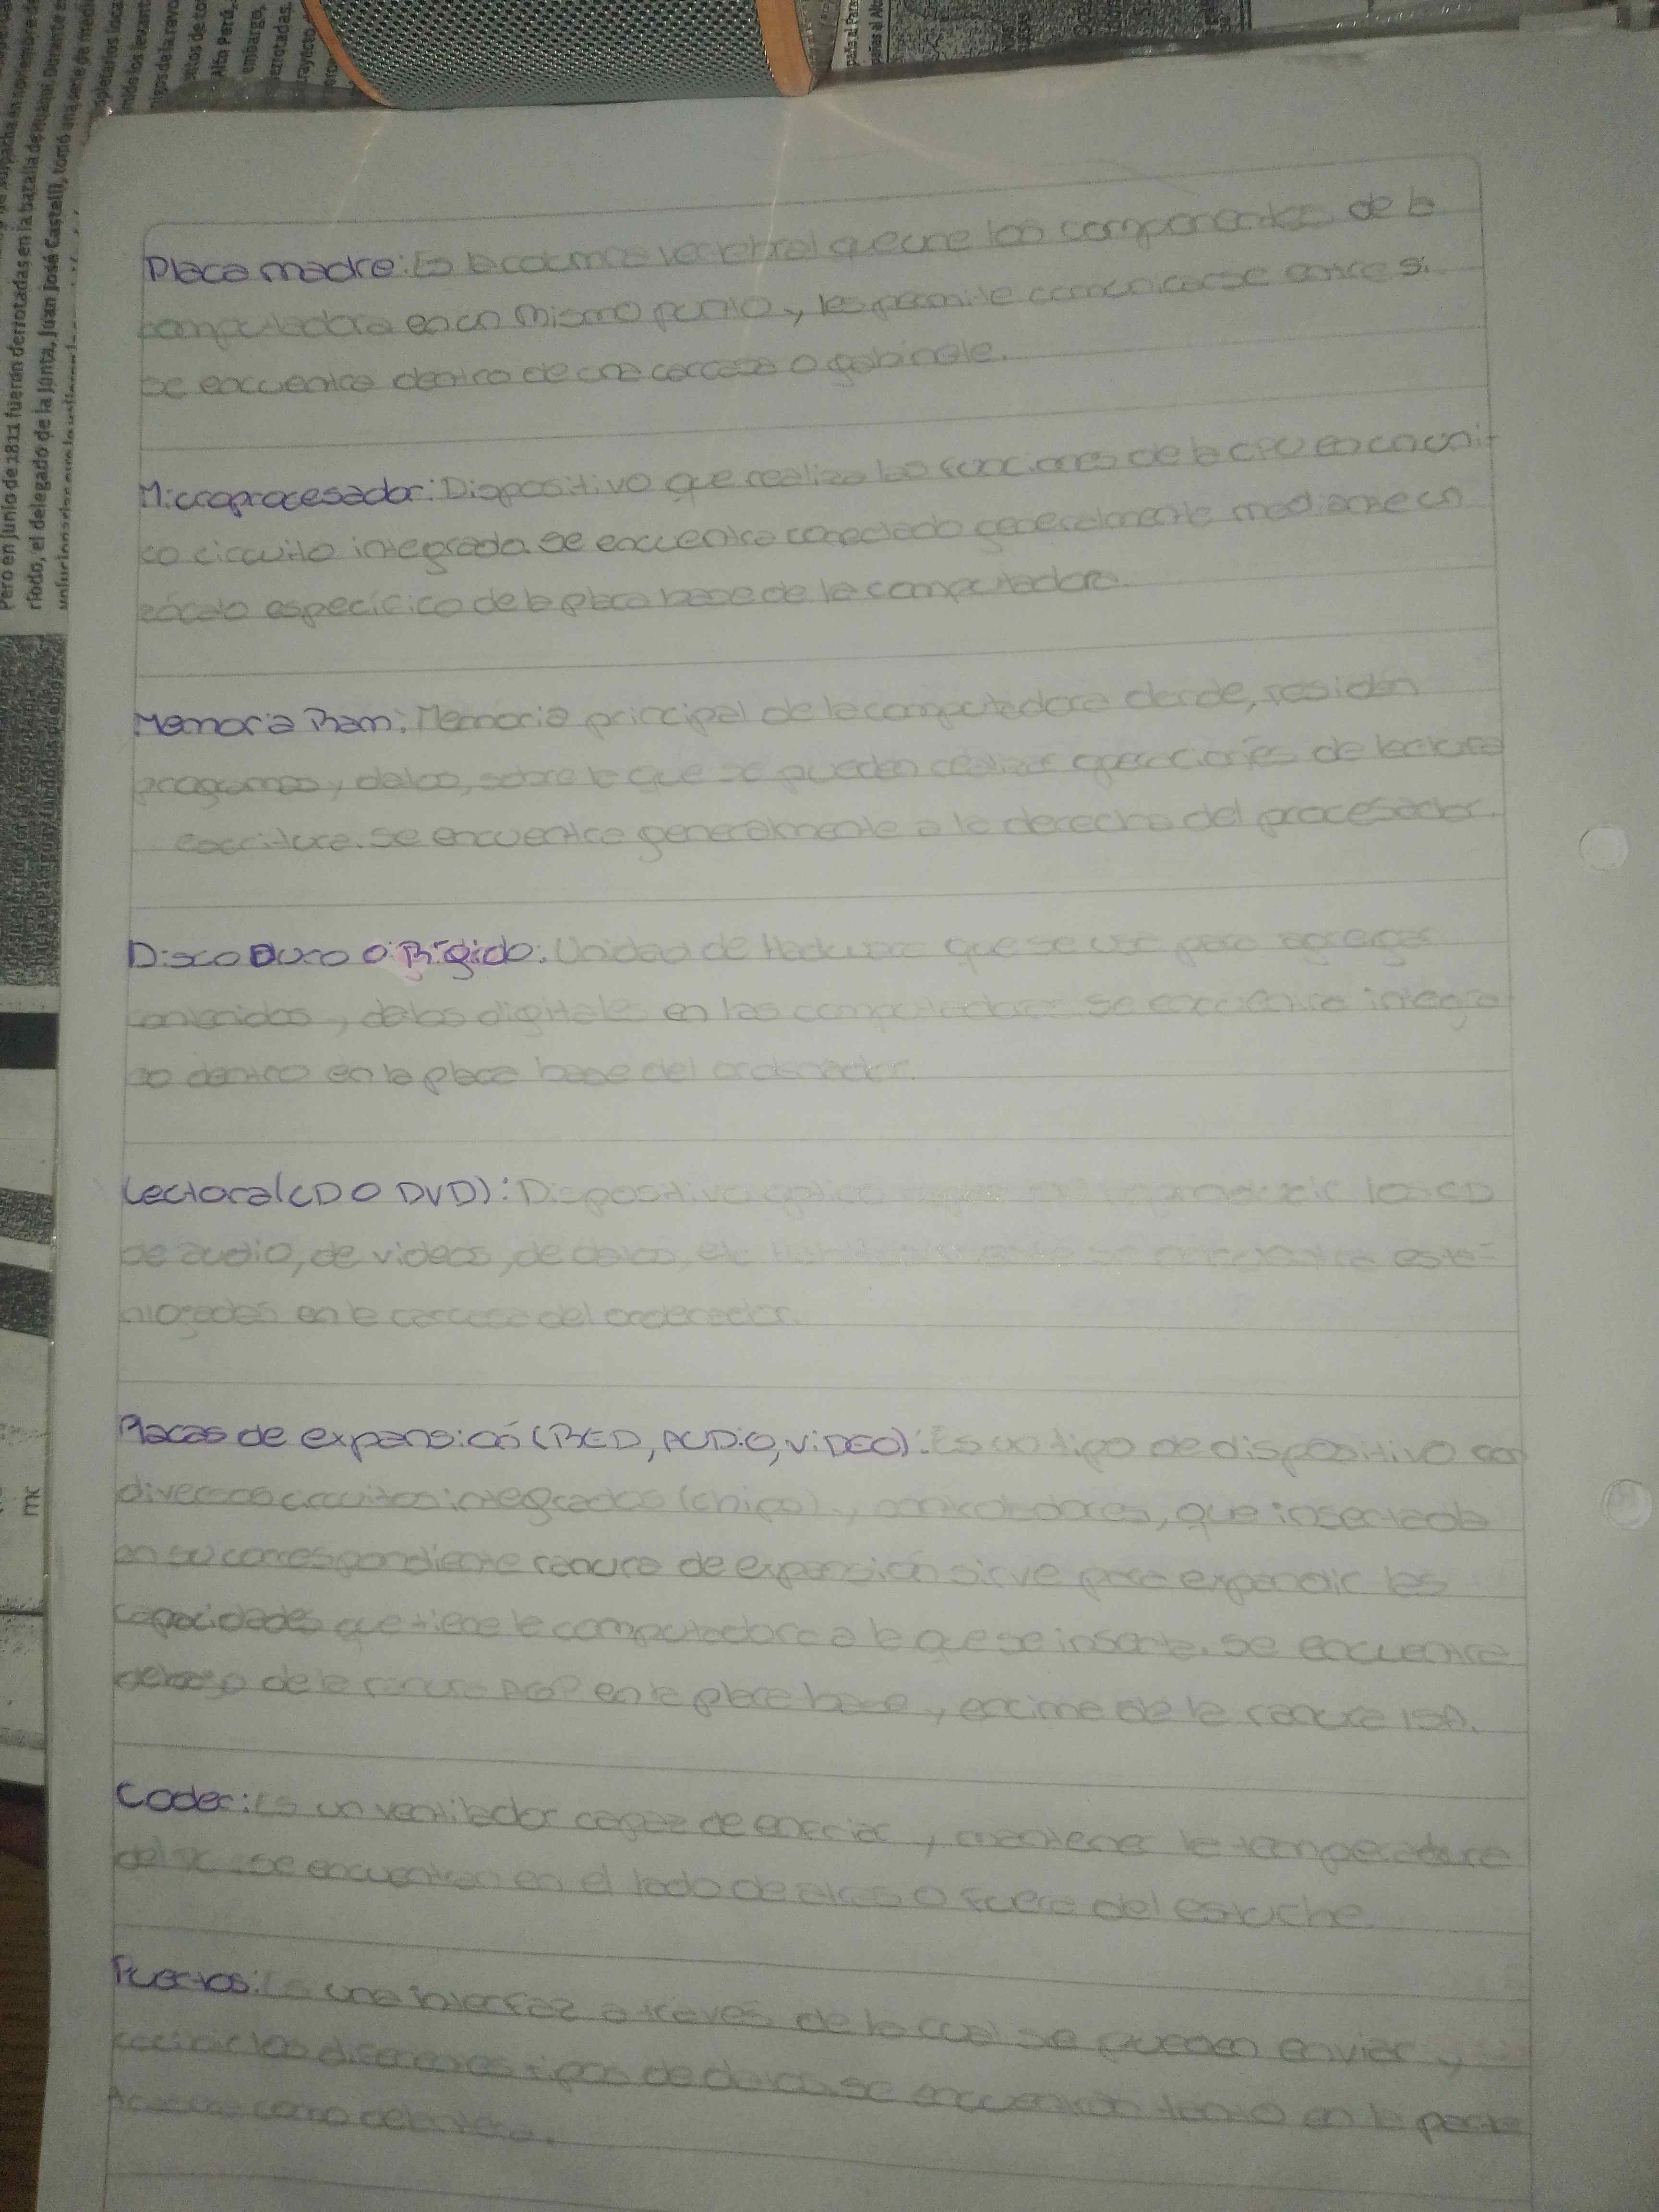 Pero en junio de 1811 fueron derrotadas en la batalla de Huaqui. Durante
ríodo, el delegado de la Junta, Juan José Castelli, tomó una serie de
Placa madre: Es la columna vertebral que une los componentes de la
computadora en un mismo punto y les permite comunicarse entre si.
Se encuentra dentro de una carcasa o gabinete.
Microprocesador: Dispositivo que realiza las funciones de la CPU en un uni-
co circuito integrado. Se encuentra conectado generalmente mediante un
zócalo específico de la placa base de la computadora.
Memoria Ram: Memoria principal de la computadora donde, residen
programas y datos, sobre la que se pueden realizar operaciones de lectura
escritura. Se encuentra generalmente a la derecha del procesador.
Disco Duro o Rígido: Unidad de Hadware que se usa para agregar
contenidos y datos digitales en las computadoras se encuentra integra
do dentro en la placa base del ordenador.
Lectora (CD O DVD): Dispositivo reproducir los CD
de audio, de videos, de datos, etc
en la carcasa del ordenador.
Placas de expansión (RED, AUDIO, VIDEO): Es un tipo de dispositivo con
diversos circuitos integrados (chips) y controladores, que insertada
en su correspondiente ranura de expansión sirve para expandir las
capacidades que tiene la computadora a la que se inserta. Se encuentra
debajo de la ranura AGP en la placa base y encima de la ranura ISA.
Cooler: Es un ventilador capaz de enfriar y mantener la temperatura
se encuentran en el lado de atras o fuera del estuche.
Puertos: Es una interfaz a través de la cual se pueden enviar y
recibir los diferentes tipos de datos. Se encuentran tanto en la parte
trasera como delantera.